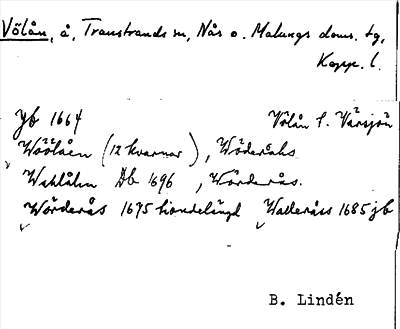 Völån, å, Transtrands sn, Nås o. Malungs doms. tg,
Kopp. l.
Jb 1664 Völån S. Värsjön
Wöölåen (12 kvarnar), Wöderåhs
Wahlåhn Db 1696, Wörderås.
Wörderås 1675 Wallerås 1685 jb
B. Lindén